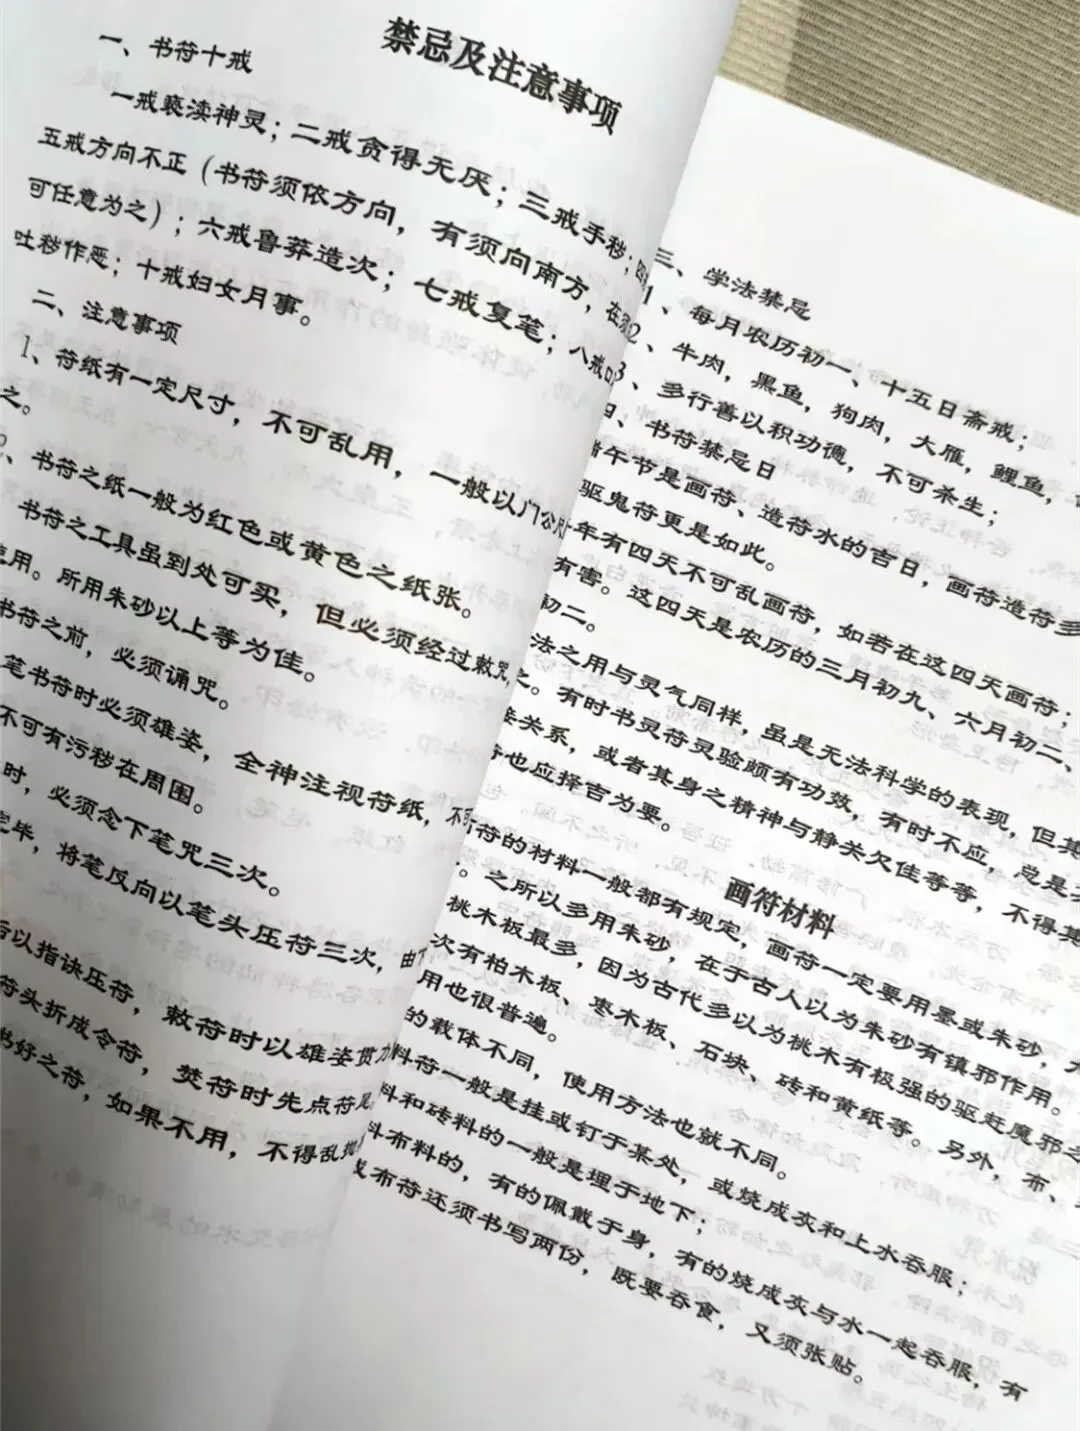 禁忌及注意事项
一、书符十戒
一戒亵渎神灵；二戒贪得无厌；三戒手秽；四
五戒方向不正（书符须依方向，有须向南方，在须
可任意为之）；六戒鲁莽造次；七戒复笔；八戒口
吐秽作恶；十戒妇女月事。
二、注意事项
1、符纸有一定尺寸，不可乱用，一般以门公尺
之。
2、书符之纸一般为红色或黄色之纸张。
书符之工具虽到处可买，但必须经过敕咒，
使用。所用朱砂以上等为佳。
书符之前，必须诵咒。
笔书符时必须雄姿，全神注视符纸，不可
不可有污秽在周围。
时，必须念下笔咒三次。
毕，将笔反向以笔头压符三次，由下
后以指诀压符，敕符时以雄姿贯力
符头折成令符，焚符时先点符尾
书好之符，如果不用，不得乱抛
三、学法禁忌
1、每月农历初一、十五日斋戒；
2、牛肉，黑鱼，狗肉，大雁，鲤鱼，
3、多行善以积功德，不可杀生；
四、书符禁忌日
端午节是画符、造符水的吉日，画符造符多
驱鬼符更是如此。
年有四天不可乱画符，如若在这四天画符；
有害。这四天是农历的三月初九、六月初二、
初二。
法之用与灵气同样，虽是无法科学的表现，但其
之。有时书灵符灵验颇有功效，有时不应，总是其
接关系，或者其身之精神与静关欠佳等等，不得其
符也应择吉为要。
画符材料
符的材料一般都有规定，画符一定要用墨或朱砂，
。之所以多用朱砂，在于古人以为朱砂有镇邪作用。
桃木板最多，因为古代多以为桃木有极强的驱赶魔邪之
次有柏木板、枣木板、石块、砖和黄纸等。另外，布、
用也很普遍。
的载体不同，使用方法也就不同。
料符一般是挂或钉于某处，或烧成灰和上水吞服；
料和砖料的一般是埋于地下；
料布料的，有的佩戴于身，有的烧成灰与水一起吞服，有
或布符还须书写两份，既要吞食，又须张贴。